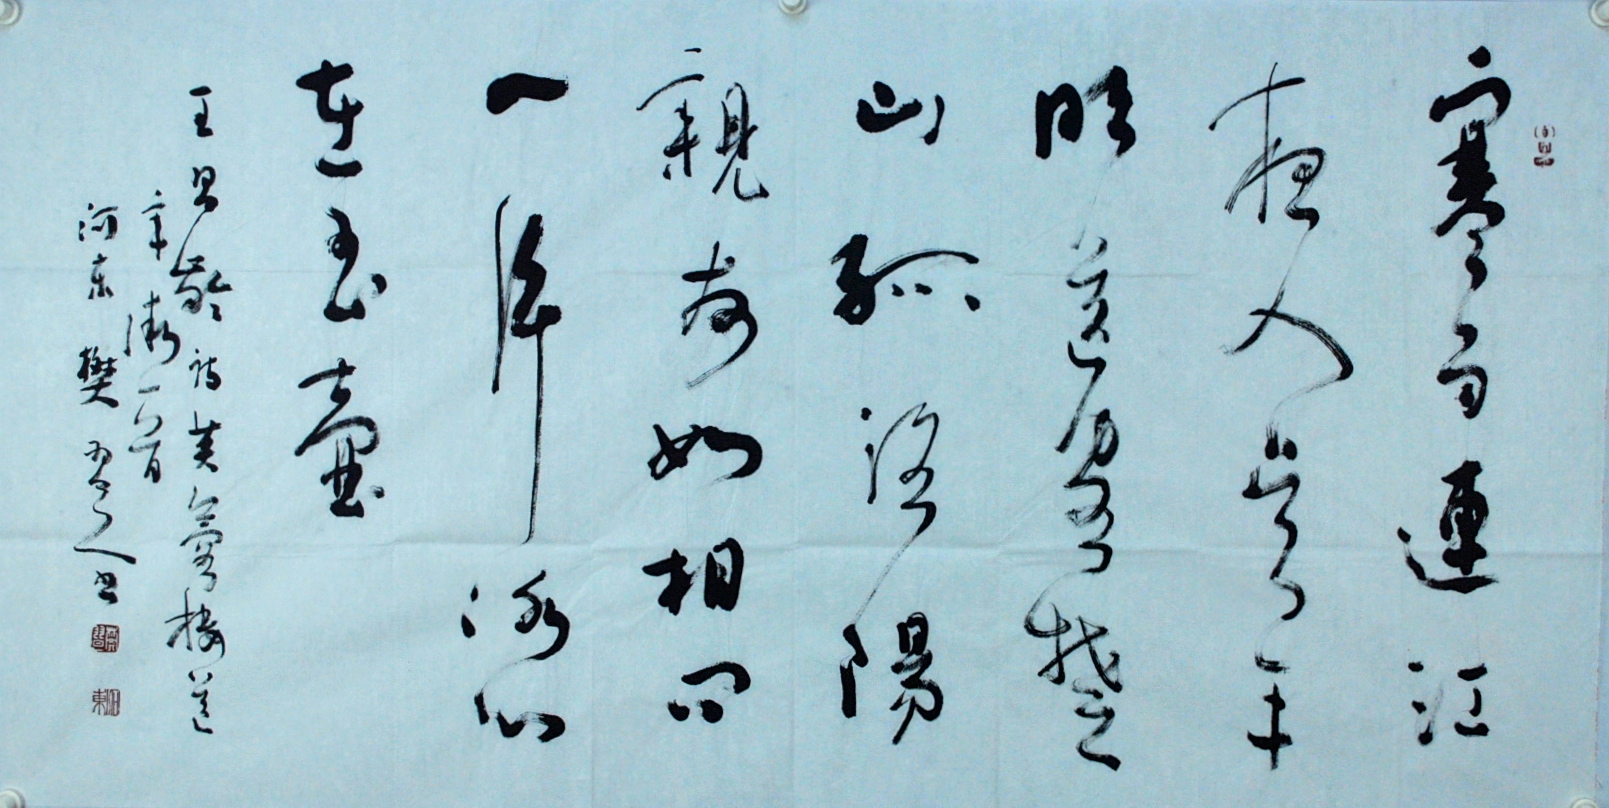 寒雨連江
夜入吳平
明送客楚
山孤洛陽
親友如相問
一片冰心
在玉壺
王昌齡詩芙蓉樓送
辛漸一首
河东樊人书